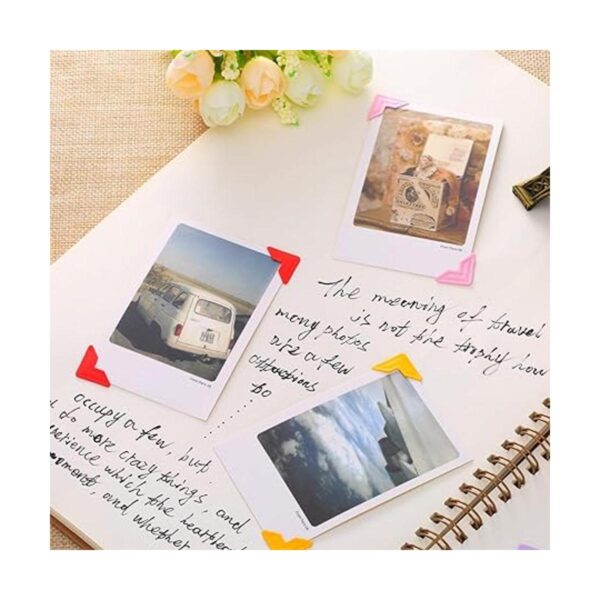 The meaning of travel
is not the trophy how
many photos
are a few
attractions
to
occupy a few, but
to do more crazy things, and
experience which the heartbeat
moments, and whether